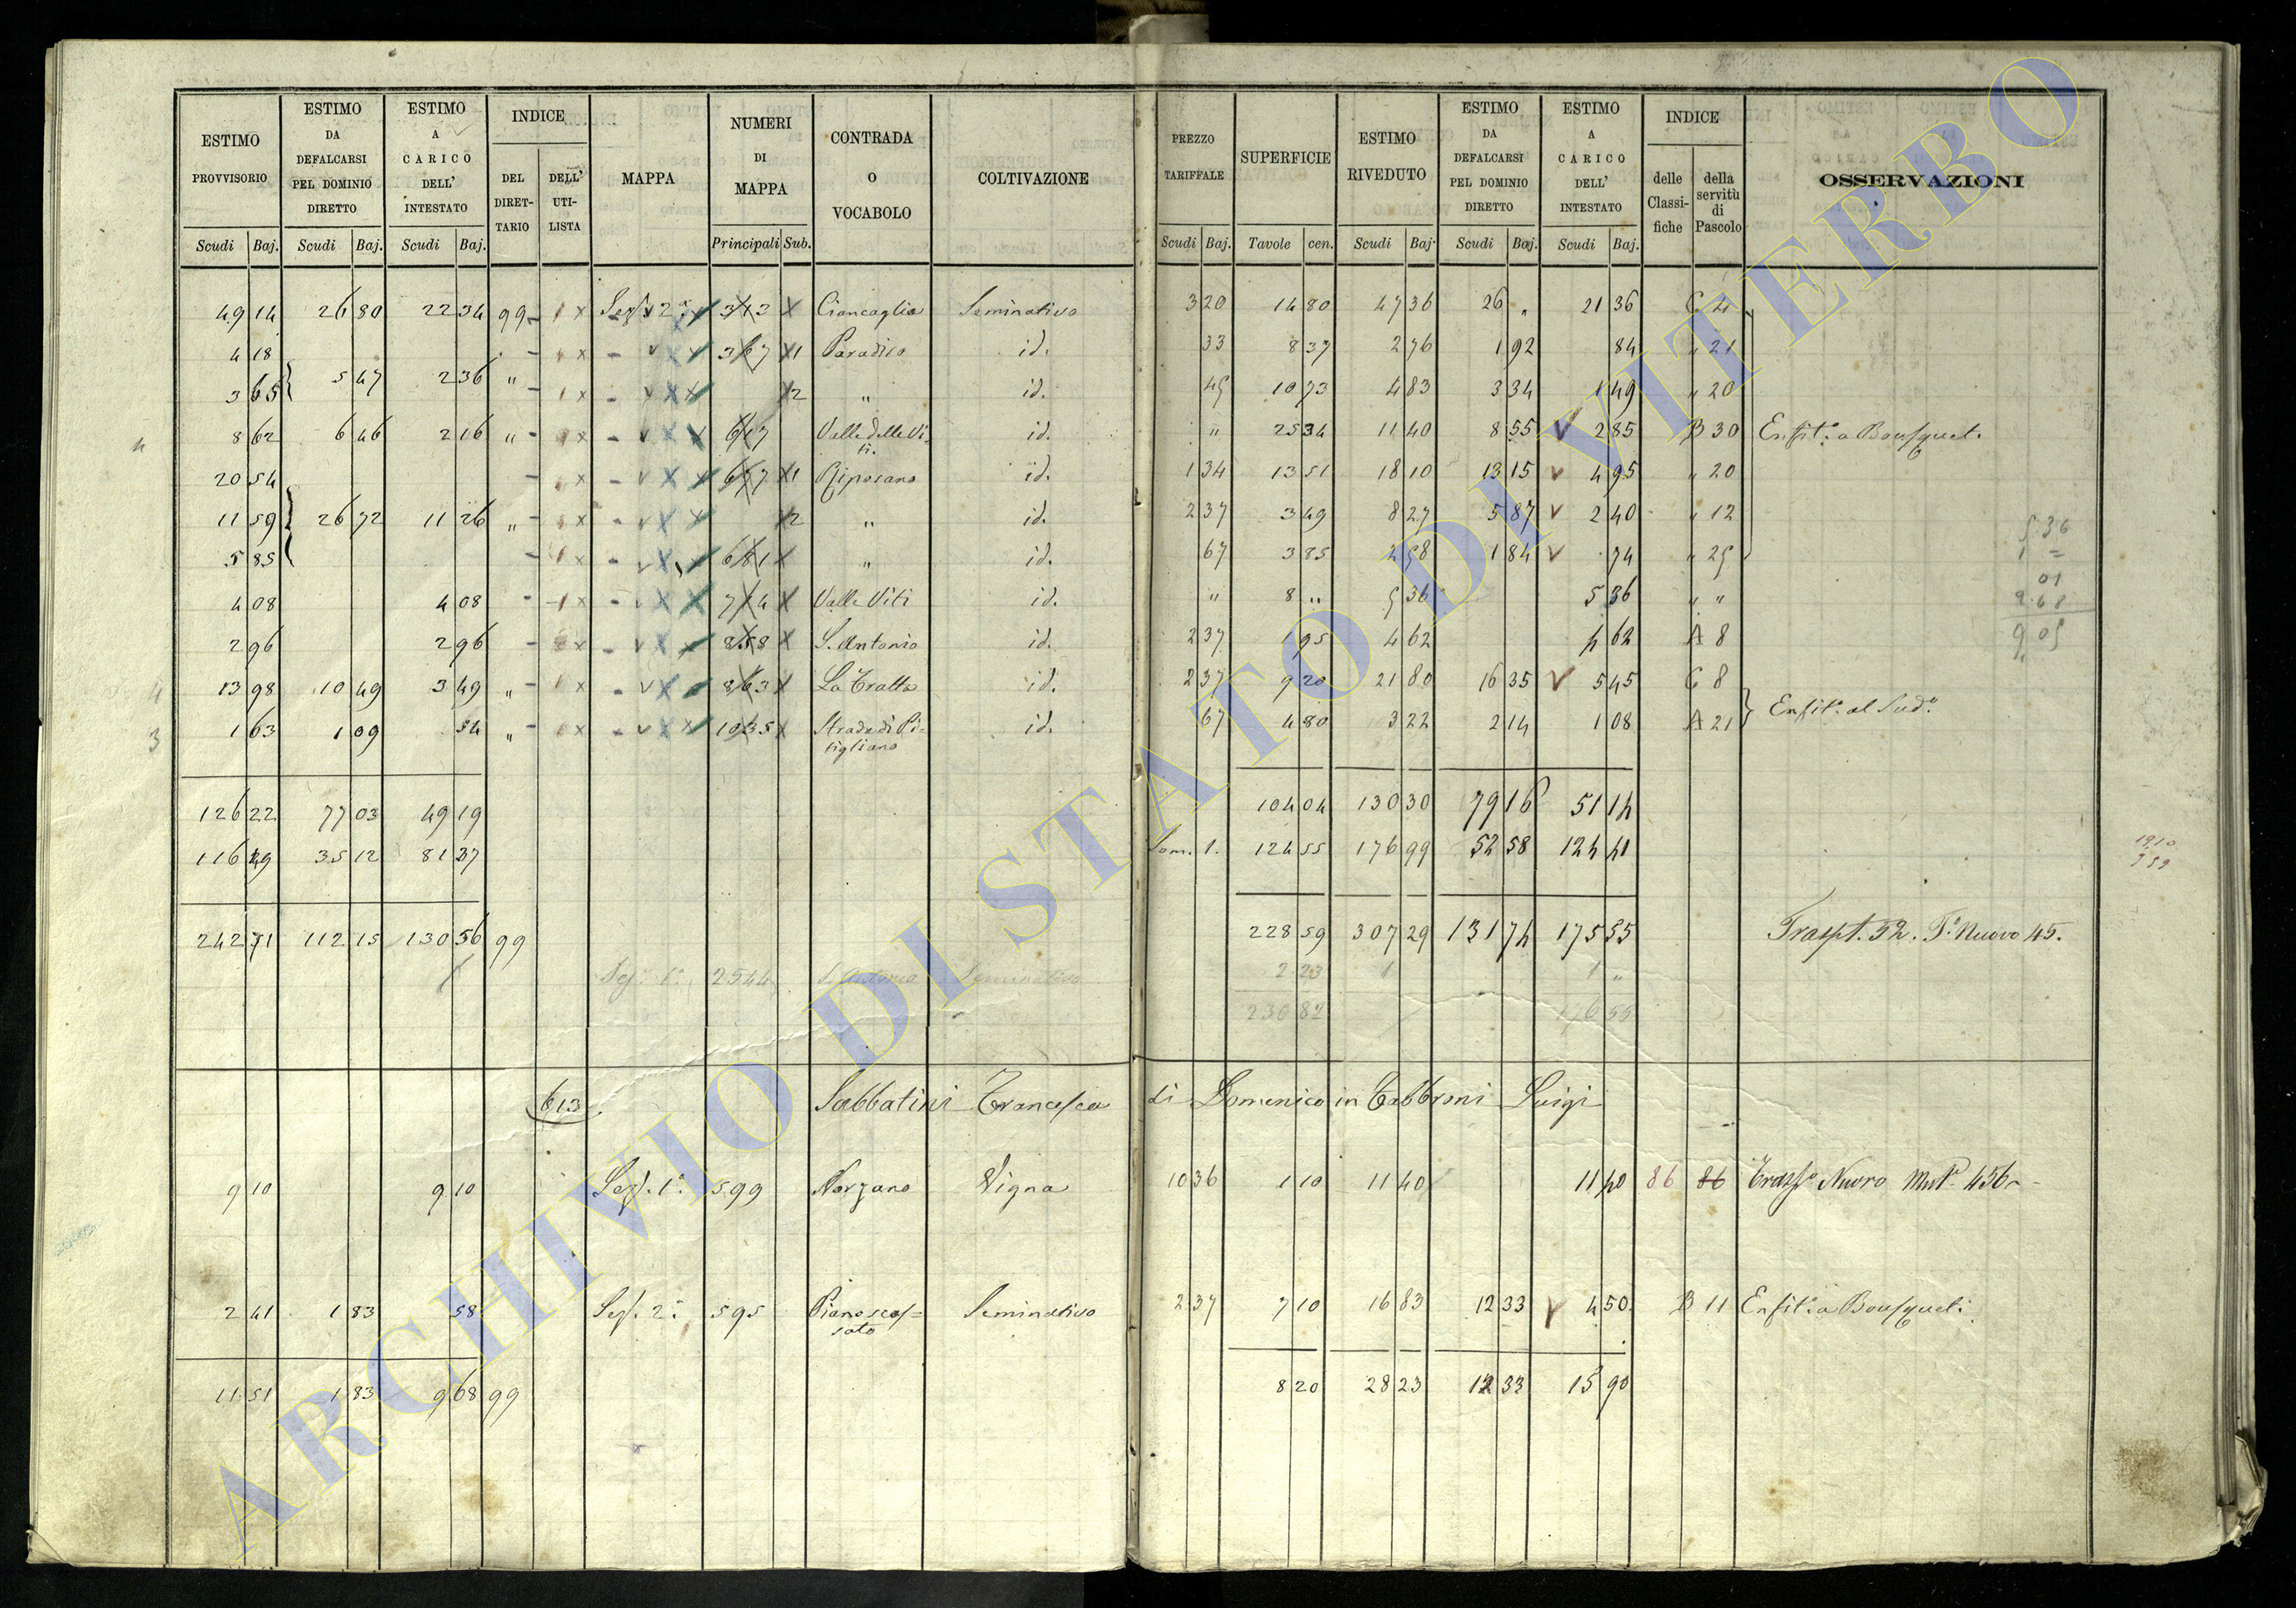 ESTIMO PROVVISORIO Scudi Baj. | ESTIMO DA DEFALCARSI PEL DOMINIO DIRETTO Scudi Baj. | ESTIMO A CARICO DELL' INTESTATO Scudi Baj. | INDICE DEL DIRET- TARIO | DELL' UTI- LISTA | MAPPA | NUMERI DI MAPPA Principali Sub. | CONTRADA O VOCABOLO | COLTIVAZIONE | PREZZO TARIFFALE Scudi Baj. | SUPERFICIE Tavole cen. | ESTIMO RIVEDUTO Scudi Baj. | ESTIMO DA DEFALCARSI PEL DOMINIO DIRETTO Scudi Baj. | ESTIMO A CARICO DELL' INTESTATO Scudi Baj. | INDICE delle Classi- fiche | della servitù di Pascolo | OSSERVAZIONI
49 14 26 80 22 34 99 Sez. 2ª 343 Ciancaglia Seminativo 3 20 14 80 47 36 26 „ 21 36 C 4
4 18 367 1 Paradiso id. 33 8 37 2 76 1 92 84 „ 21
5 47 2 36 „
3 65 2 „ id. 45 10 73 4 83 3 34 1 49 „ 20
8 62 6 46 2 16 „ 617 Valle delle Vi- ti. id. „ 25 34 11 40 8 55 2 85 B 30 Enfit. a Bousquet.
20 54 677 1 Riposaro id. 1 34 13 51 18 10 13 15 4 95 „ 20
11 59 26 72 11 26 „ 2 „ id. 2 37 3 49 8 27 5 87 2 40 „ 12
5 85 681 „ id. 67 3 85 2 58 1 84 74 „ 25
4 08 4 08 724 Valle Viti id. „ 8 „ 5 36 5 36 „ „
2 96 2 96 858 S. Antonio id. 2 37 1 95 4 62 4 62 A 8
13 98 10 49 3 49 „ 863 La Tratta id. 2 37 9 20 21 80 16 35 5 45 C 8
1 63 1 09 54 „ 1035 Strada di Pi- tigliano id. 67 4 80 3 22 2 14 1 08 A 21 Enfit. al Sud.º
126 22 77 03 49 19 104 04 130 30 79 16 51 14
116 49 35 12 81 37 Som. 1. 124 55 176 99 52 58 124 41
242 71 112 15 130 56 99 228 59 307 29 131 74 175 55 Traspt. 52. Tº Nuovo 45.
Sez. 1ª 2544 S. Antonio Seminativo 2 23 1 1 „
230 82 176 55
613. Sabbatini Francesca di Domenico in Fabbroni Luigi
9 10 9 10 Sez. 1ª 599 Norzano Vigna 10 36 1 10 11 40 11 40 86 86 Trasp. Nuovo Mutª 456
2 41 1 83 58 Sez. 2ª 595 Piano scas- sato Seminativo 2 37 7 10 16 83 12 33 4 50 B 11 Enfit. a Bousquet.
11 51 1 83 9 68 99 8 20 28 23 12 33 15 90
ARCHIVIO DI STATO DI VITERBO